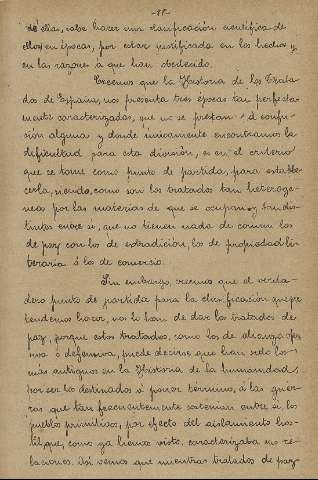 -11-
de ellas, cabe hacer una clasificación científica de
ellos en épocas, por estar justificada en los hechos y
en las razones a que han obedecido.
Creemos que la Historia de los Trata
dos de España, nos presenta tres épocas tan perfecta
mente caracterizadas, que no se prestan á confu-
sión alguna y donde únicamente encontramos la
dificultad para esta división, es en el criterio
que se tome como punto de partida, para estable-
cerla, siendo, como son los tratados tan heterogé-
neos por las materias de que se ocupan y tan dis-
tintos entre si, que no tienen nada de comun los
de paz con los de extradición, los de propiedad li-
teraria á los de comercio.
Sin embargo, creemos que el verda-
dero punto de partida para la clasificación que pre
tendemos hacer, nos lo han de dar los tratados de
paz, porque estos tratados, como los de alianza ofen
siva ó defensiva, puede decirse que han sido los
mas antiguos en la Historia de la humanidad,
por ser los destinados á poner termino, á las gue-
rras que tan frecuentemente sostenian entre si los
pueblos primitivos, por efecto del aislamiento hos-
til, que, como ya hemos visto, caracterizaba sus re-
laciones. Asi vemos que mientras tratados de paz